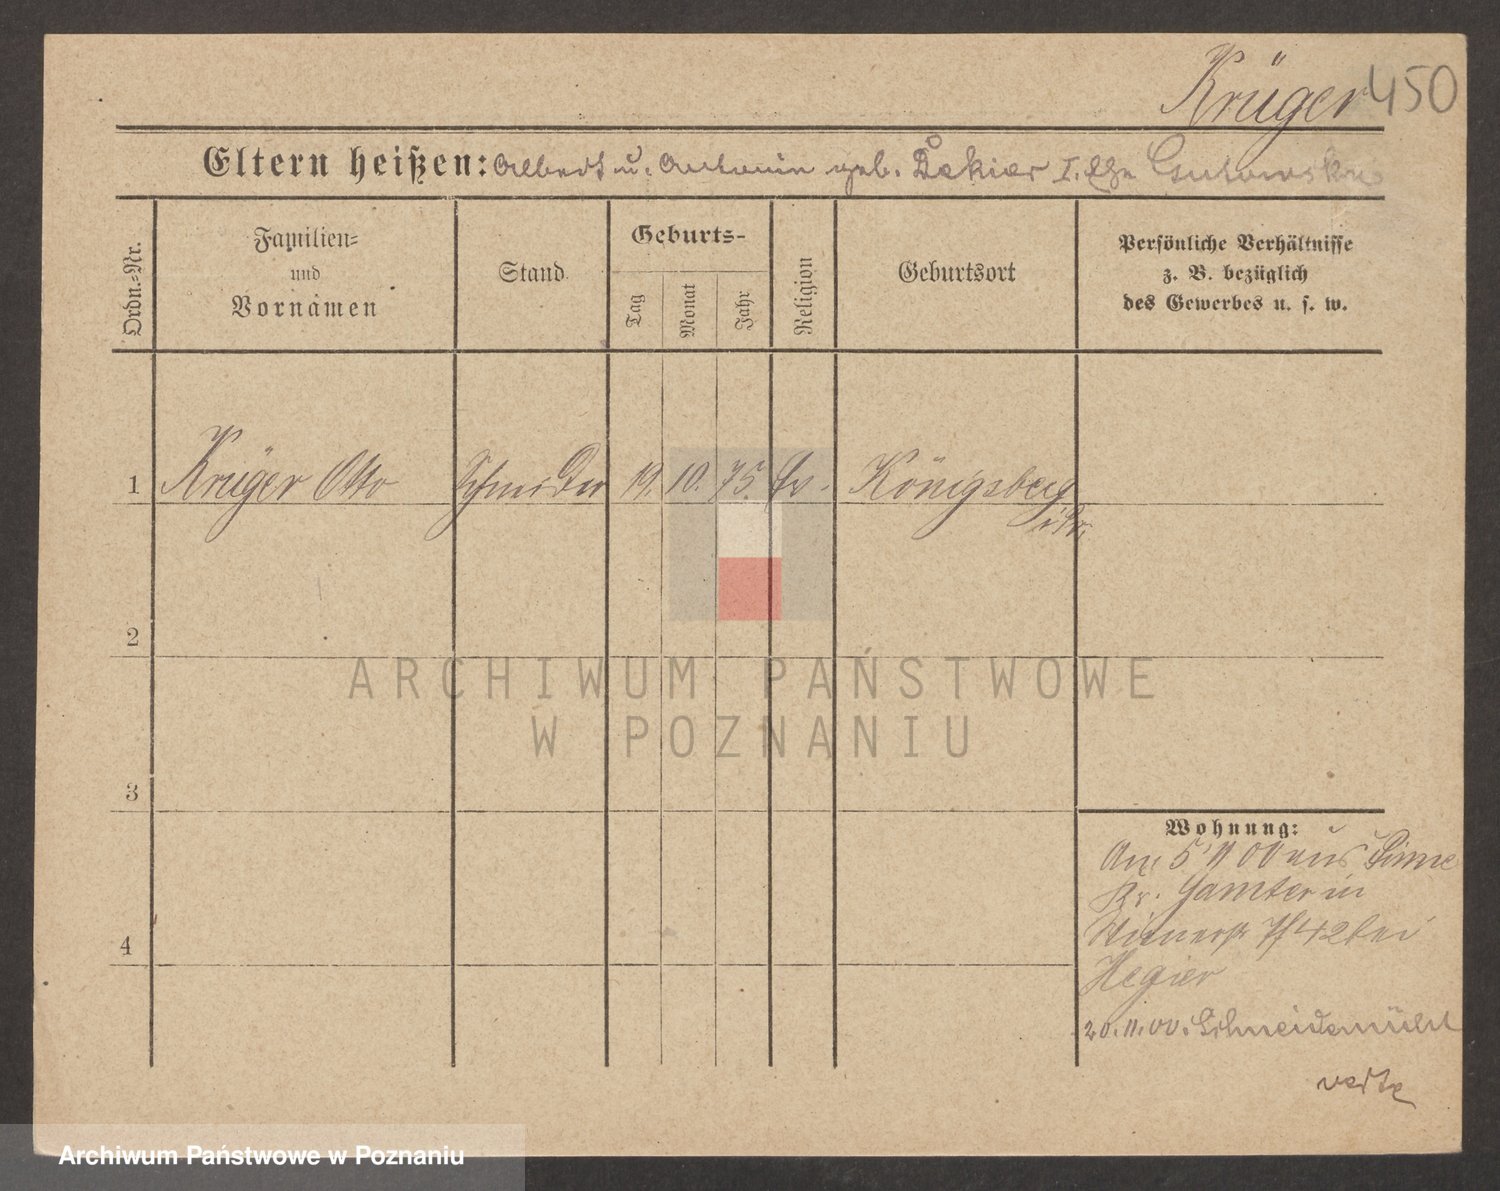 Krüger 450
Eltern heißen: Albert u. Antonin geb. Dekier I. Ehe Gutowska
Ordn.=Nr.
Familien=
und
Vornamen
Stand
Geburts-
Tag
Monat
Jahr
Religion
Geburtsort
Persönliche Verhältnisse
z. B. bezüglich
des Gewerbes u. s. w.
1 Krüger Otto Schneider 19. 10. 75 Ev. Königsberg
i. Pr.
2
3
4
Wohnung:
Am 5/11 00 aus Pinne
Kr. Samter in
42 bei
Hegier
20. 11. 00. Schneidemühl
verte
ARCHIWUM PAŃSTWOWE
W POZNANIU
Archiwum Państwowe w Poznaniu